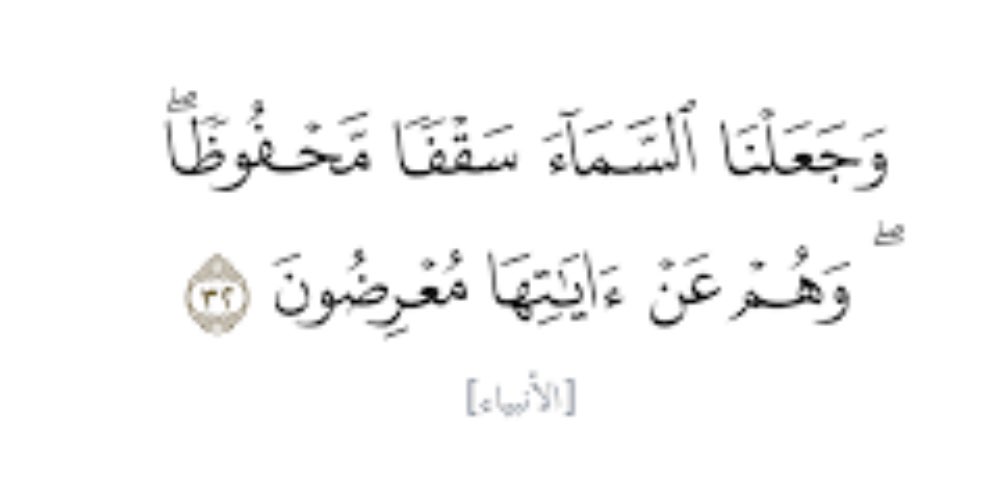 وَجَعَلْنَا ٱلسَّمَآءَ سَقْفًا مَّحْفُوظًاۖ
ۖ وَهُمْ عَنْ ءَايَٰتِهَا مُعْرِضُونَ ٣٢
[الأنبياء]